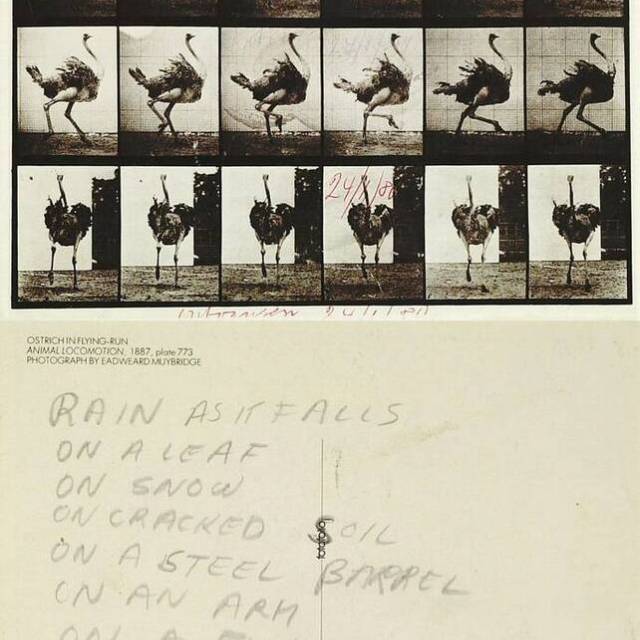 24/1/80
OSTRICH IN FLYING-RUN
ANIMAL LOCOMOTION, 1887, plate 773
PHOTOGRAPH BY EADWEARD MUYBRIDGE
RAIN AS IT FALLS
ON A LEAF
ON SNOW
ON CRACKED SOIL
ON A STEEL BARREL
ON AN ARM
ON A